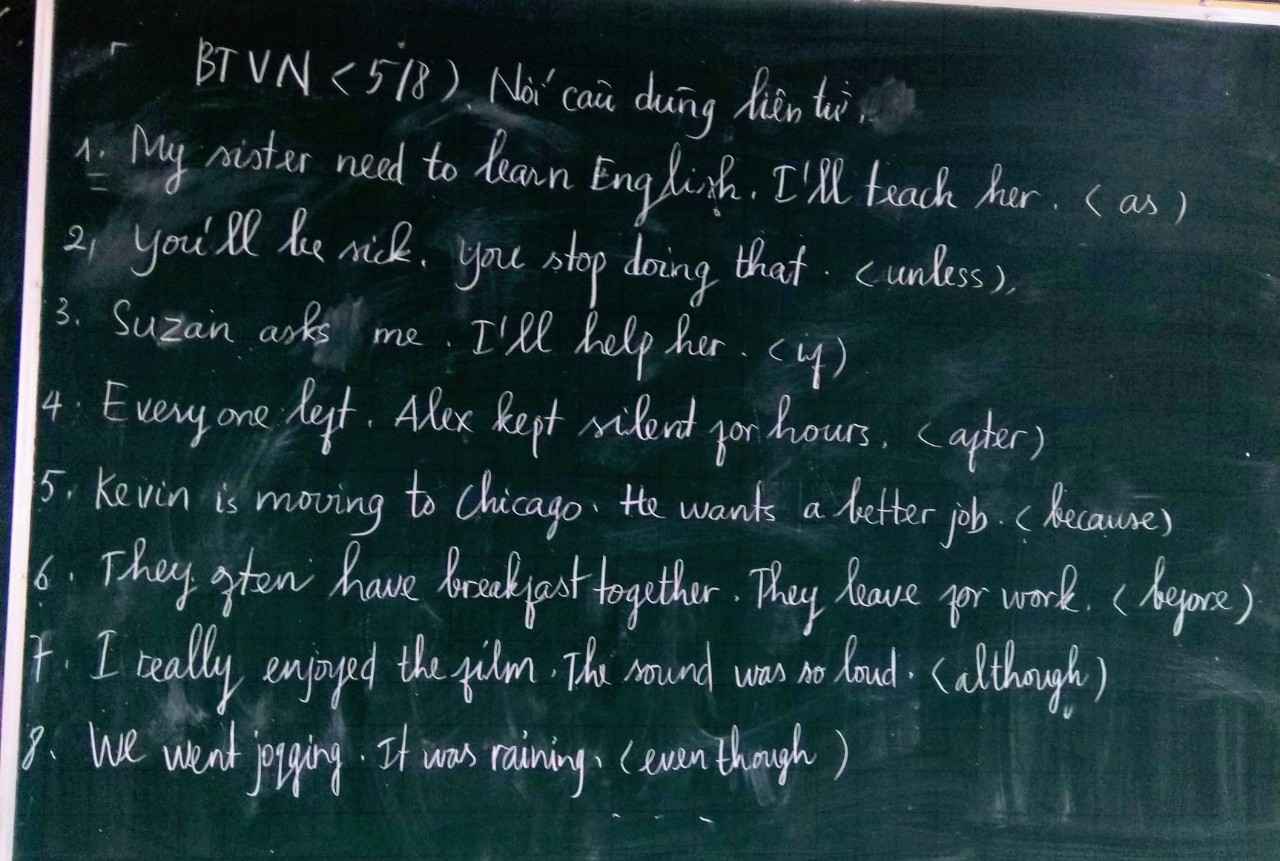 BTVN <5/8). Nối câu dùng liên từ.
1. My sister need to learn English. I'll teach her. (as)
2, You'll be sick. You stop doing that. (unless),
3. Suzan asks me. I'll help her. (if)
4. Every one left. Alex kept silent for hours. (after)
5. Kevin is moving to Chicago. He wants a better job. (because)
6. They often have breakfast together. They leave for work. (before)
7. I really enjoyed the film. The sound was so loud. (although)
8. We went jogging. It was raining. (even though)